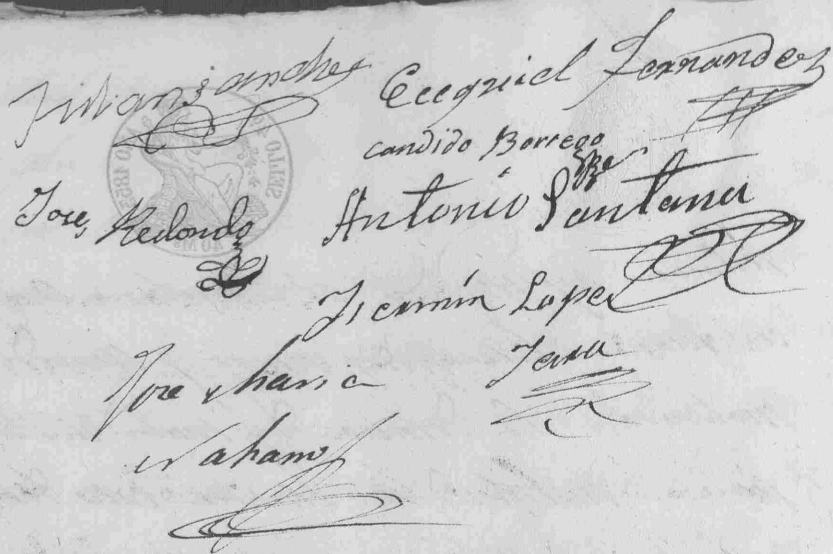 Julian Sanchez
Ecequiel Fernandez
candido Borrego
Jose Redondo
Antonio Santana
Fermín Lopez
Jose Maria